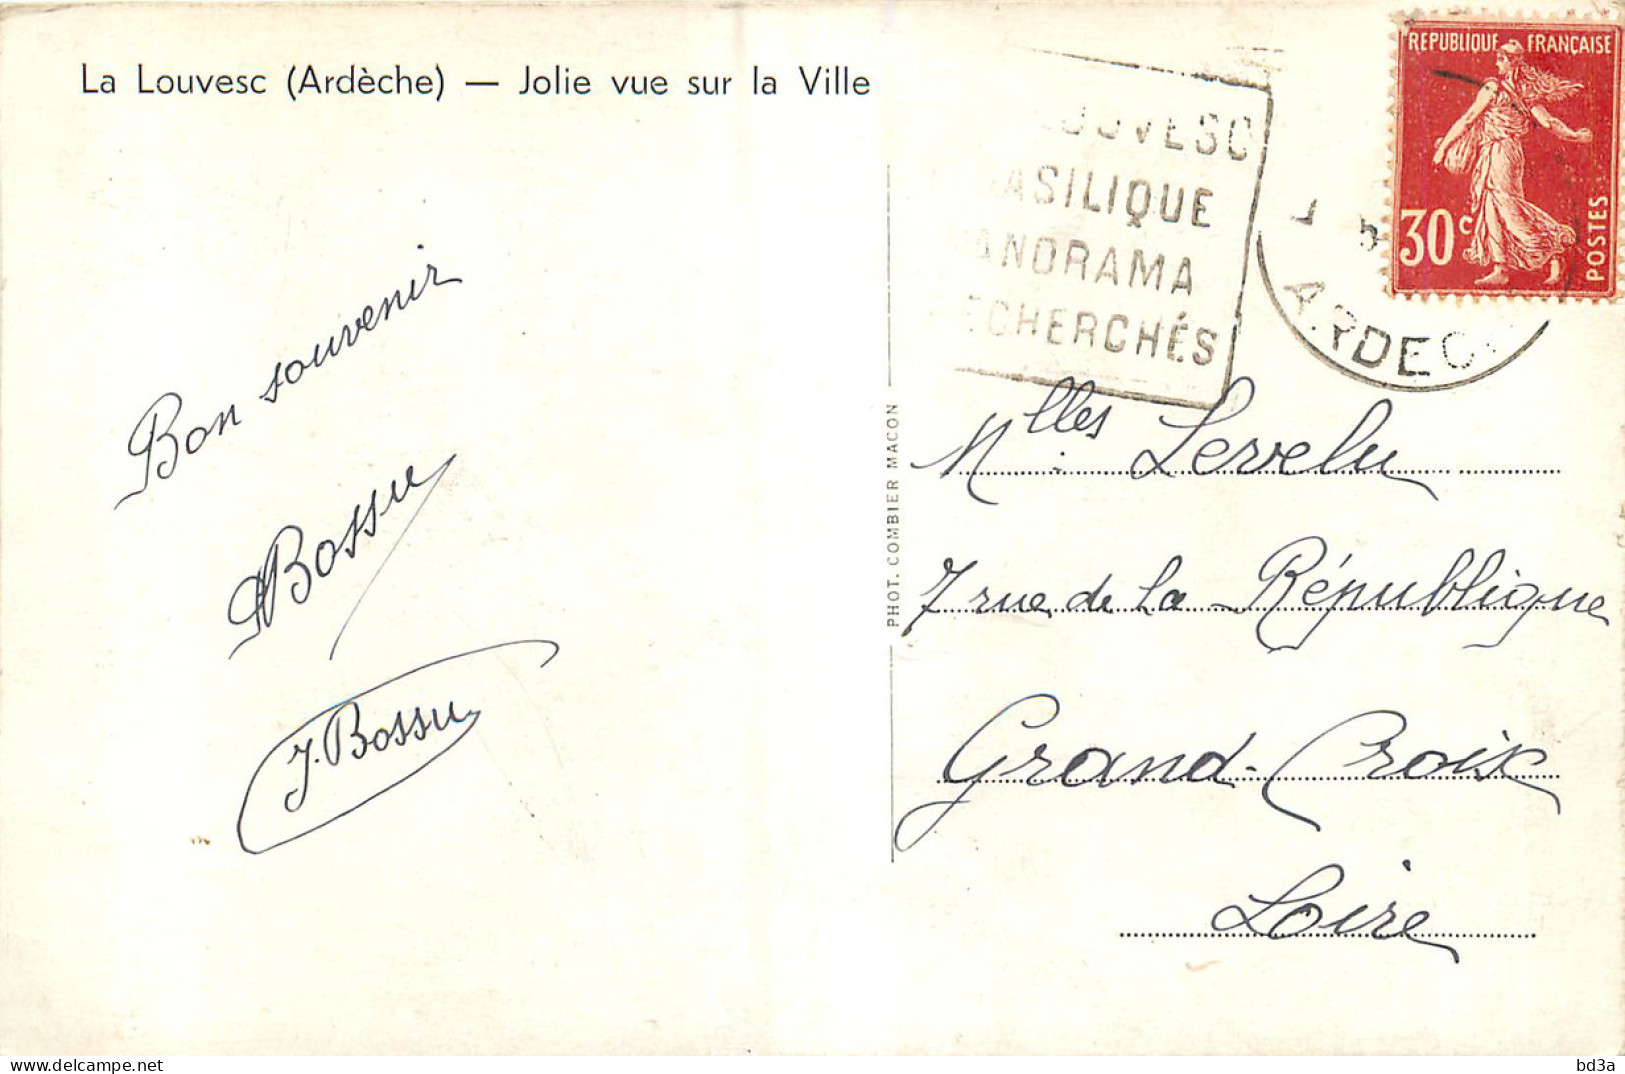 La Louvesc (Ardèche) — Jolie vue sur la Ville
Bon souvenir
Bossu
J. Bossu
PHOT. COMBIER MACON
OUVESC
BASILIQUE
ANORAMA
ECHERCHÉS
ARDEC
REPUBLIQUE FRANÇAISE
30c
POSTES
Mlles Levelu
7 rue de la République
Grand-Croix
Loire
delcampe.net
bd3a